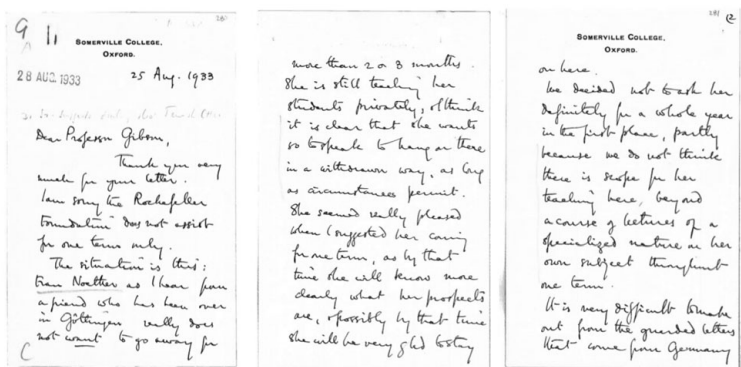 9
280
SOMERVILLE COLLEGE,
OXFORD.
28 AUG. 1933
25 Aug. 1933
Dear Professor Gibson,
Thank you very
much for your letter.
I am sorry the Rockefeller
Foundation does not assist
for one term only.
The situation is this:
Frau Noether as I hear from
a friend who has been over
in Göttingen really does
not want to go away for
more than 2 or 3 months.
She is still teaching her
students privately, & I think
it is clear that she wants
so to speak to hang on there
in a withdrawn way, as long
as circumstances permit.
She seemed really pleased
when I suggested her coming
for one term, as by that
time she will know more
clearly what her prospects
are, & possibly by that time
she will be very glad to stay
281
2
SOMERVILLE COLLEGE,
OXFORD.
on here.
We decided not to ask her
definitely for a whole year
in the first place, partly
because we do not think
there is scope for her
teaching here, beyond
a course of lectures of a
specialized nature on her
own subject throughout
one term.
It is very difficult to make
out from the guarded letters
that come from Germany